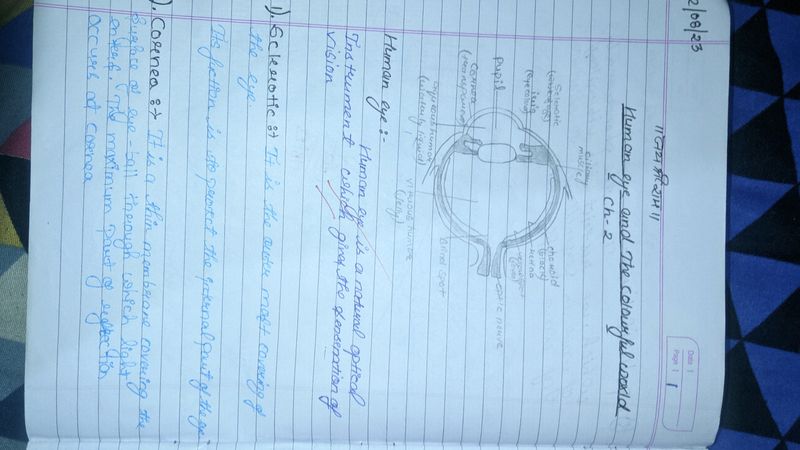 2/08/23
Date :
Page : 1
॥ जय श्री राम ॥
Human eye and The colourful world
Ch-2
ciliary
muscle
Sclerotic
iris
pupil
cornea
aqueous humor
(watery liquid)
vitreous humor
(jelly)
choroid
(black)
retina
optic nerve
blind spot
Human eye:-
Human eye is a natural optical
Instrument which gives the sensation of
vision
1). Sclerotic :→ It is the outer most covering of
the eye.
Its fuction is to protect the internal part of the eye
). Cornea :→ It is a thin membrane covering the
Surface of eye-ball through which light
enters. The maximum part of
occurs at cornea